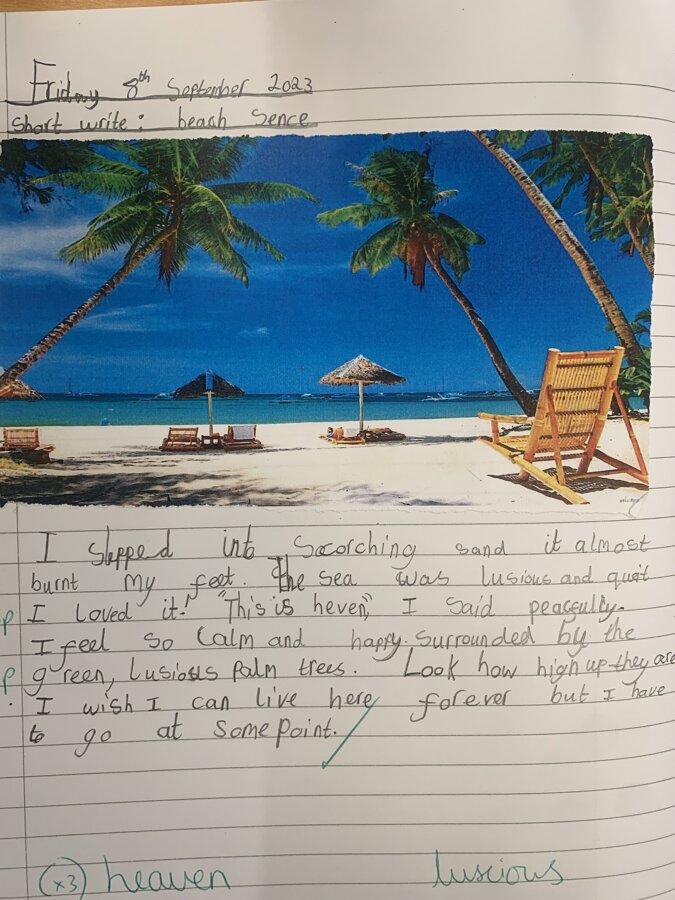 Friday 8th September 2023
Short write: beach Sence
I stepped into Scorching sand it almost
burnt my feet. The sea was lusious and quit
p I loved it! "This is heven," I said peacefully.
I feel so calm and happy. surrounded by the
p green, lusiosis palm trees. Look how high up they are
. I wish I can live here forever but I have
to go at some point.
(x3) heaven luscious